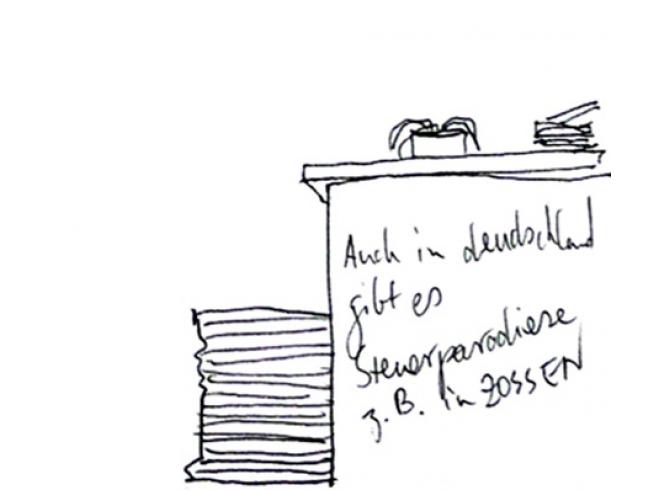 Auch in deudschland
gibt es
Steuerparadiese
z.B. in ZOSSEN